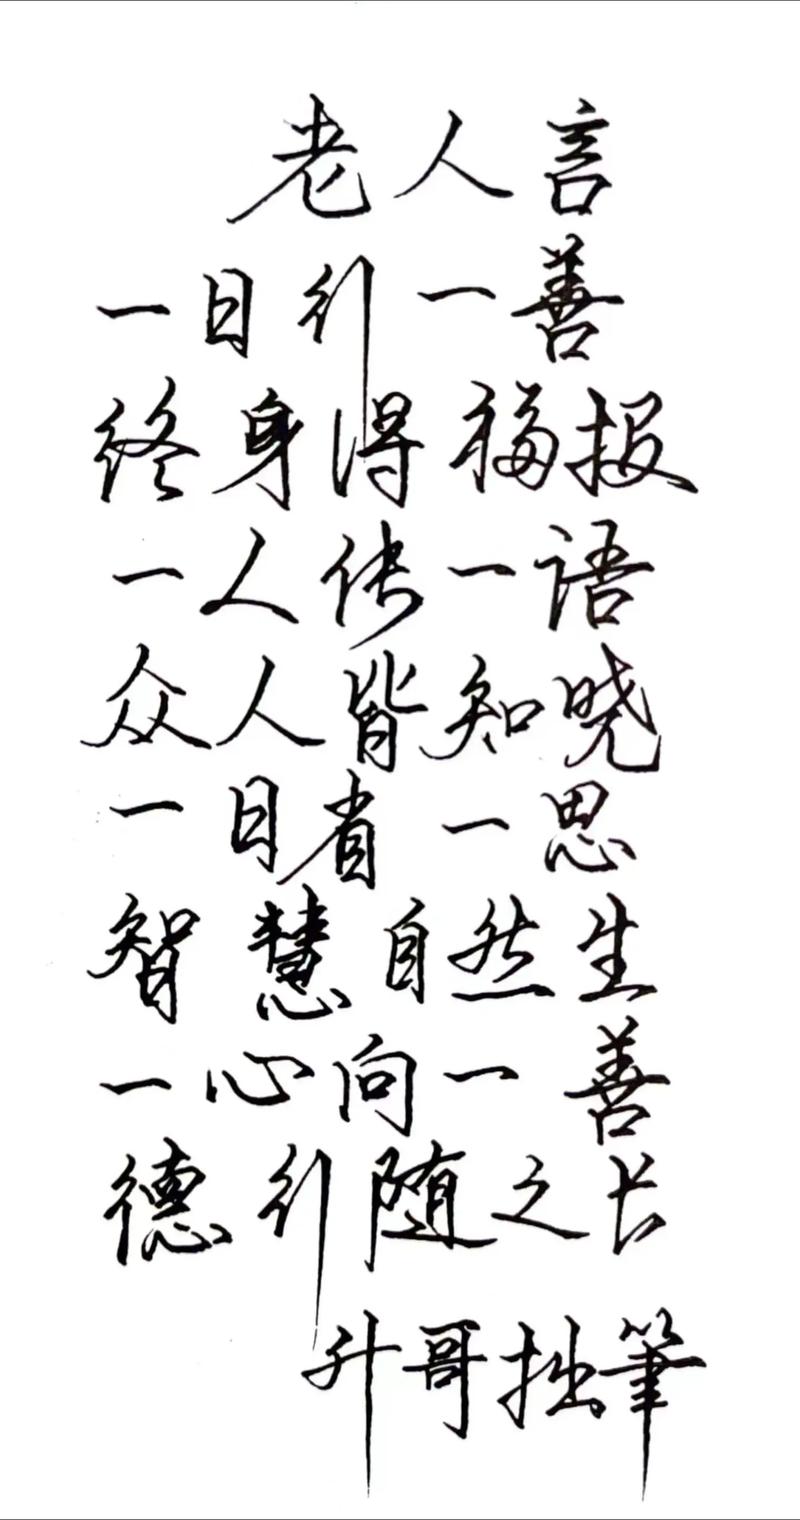 老人言
一日行一善
终身得福报
一人传一语
众人皆知晓
一日省一思
智慧自然生
一心向一善
德行随之长
升哥拙筆